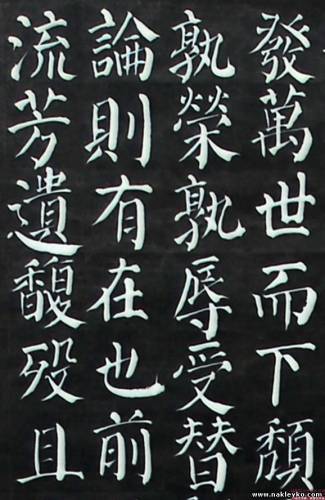 發萬世而下頹
孰榮孰辱受替
論則有在也前
流芳遺馥歿且
www.nakleyko.com